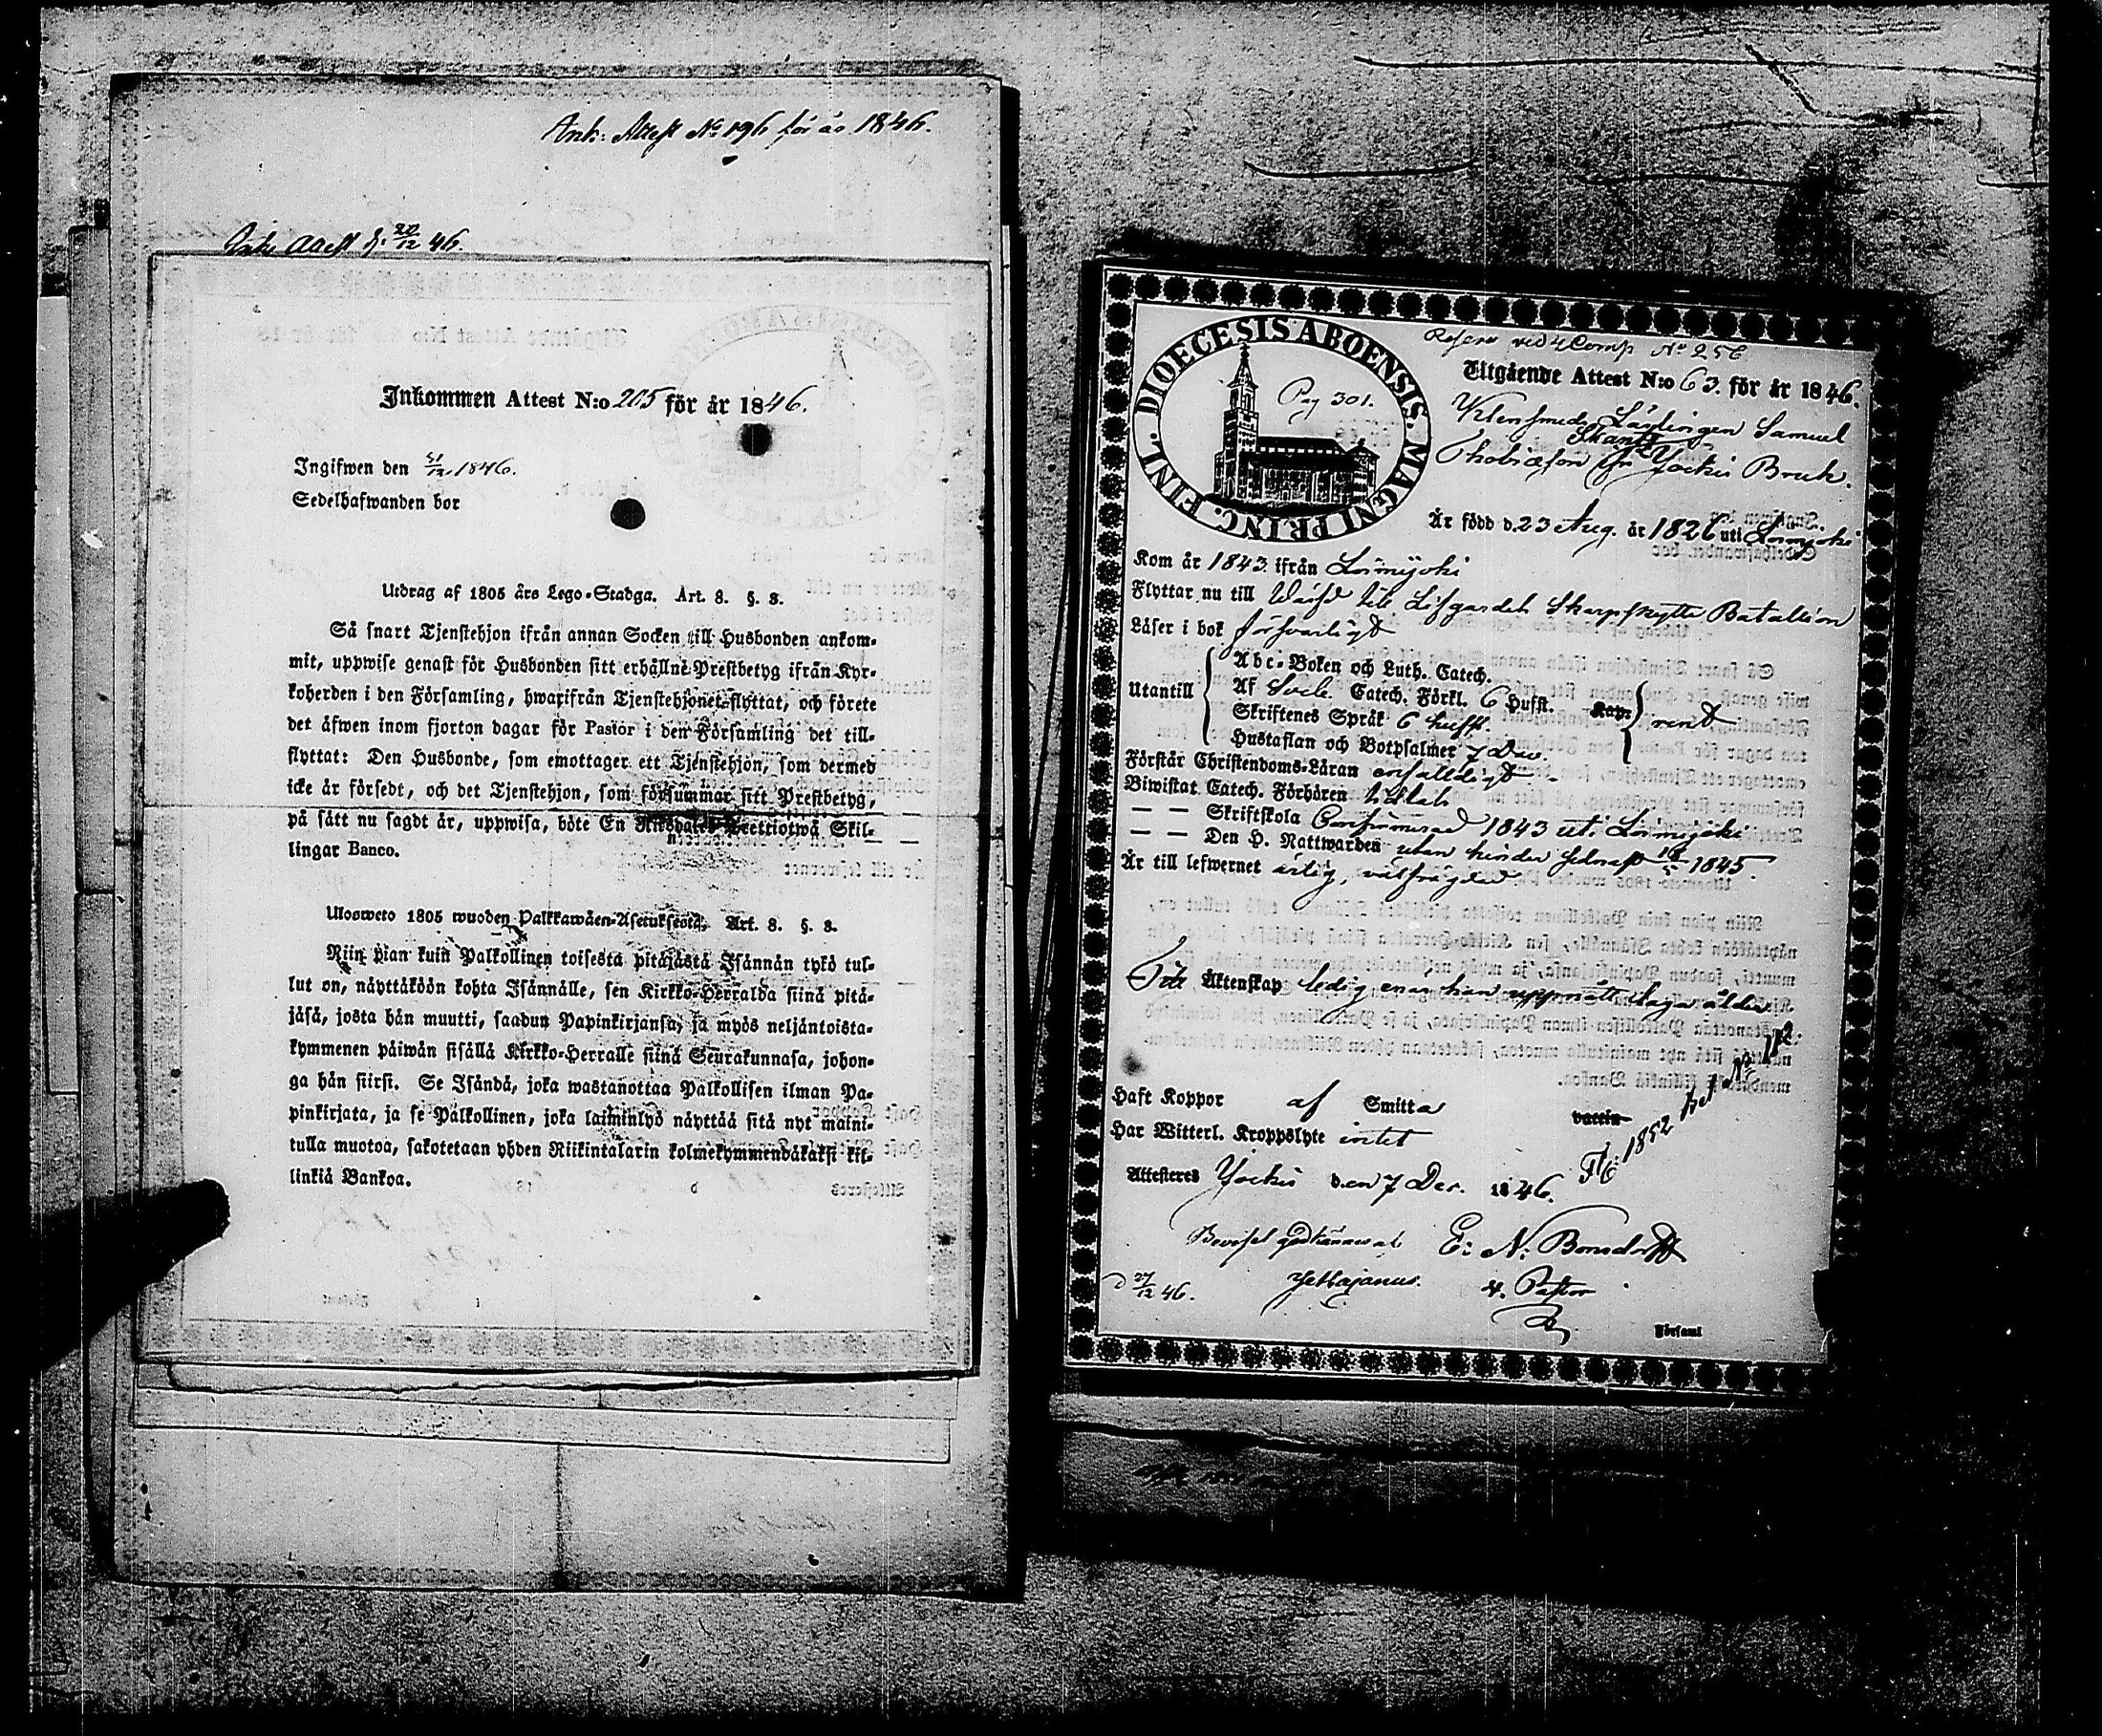 Ank. Attest No 196 för år 1846.
Attest d. 20/12 46.
Inkommen Attest N:o 205 för år 1846.
Ingifwen den 31/12 1846.
Sedelhafwanden bor
Utdrag af 1805 års Lego-Stadga. Art. 8. §. 8.
Så snart Tjenstehjon ifrån annan Socken till Husbonden ankom-
mit, uppwise genast för Husbonden sitt erhållne Prestbetyg ifrån Kyr-
koherden i den Församling, hwarifrån Tjenstehjonet flyttat, och förete
det äfwen inom fjorton dagar för Pastor i den Församling det till-
flyttat: Den Husbonde, som emottager ett Tjenstehjon, som dermed
icke är försedt, och det Tjenstehjon, som försummar sitt Prestbetyg,
på sätt nu sagdt är, uppwisa, böte En Riksdaler Trettiotwå Skil-
lingar Banco.
Ulosweto 1805 wuoden Palkkawäen-Asetuksesta. Art. 8. §. 8.
Niin pian kuin Palkollinen toisesta pitäjästä Isännän tykö tul-
lut on, näyttäköön kohta Isännälle, sen Kirkko-Herralda siinä pitä-
jäsä, josta hän muutti, saadun Papinkirjansa, ja myös neljäntoista-
kymmenen päiwän sisällä Kirkko-Herralle siinä Seurakunnasa, johon-
ga hän siirsi. Se Isändä, joka wastanottaa Palkollisen ilman Pa-
pinkirjata, ja se Palkollinen, joka laiminlyö näyttää sitä nyt maini-
tulla muotoa, sakotetaan yhden Riikintalarin kolmekymmendäkaksi kil-
linkiä Bankoa.
DIOECESIS ABOENSIS. MAGNI PRINC. FINL.
Pag 301.
Reserv vid 4 Comp No 256
Utgående Attest N:o 63. för år 1846.
Lärlingen Samuel
Skantz
Thobiæson fr. Jockis Bruk.
Är född d. 23 Aug. år 1826 uti Loimijoki
Kom år 1843 ifrån Loimijoki
Flyttar nu till Lifgardets Skarpskytte Bataillion
Läser i bok försvarligt
Utantill
Abc-Boken och Luth. Catech.
Af Sveb. Catech. Förkl. 6 Hufst. Kap.
Skriftenes Språk 6 hufst.
Hustaflan och Botpsalmer 7 Dav.
rent
Förstår Christendoms-Läran enfaldigt
Biwistat Catech. Förhören
— — Skriftskola Confirmerad 1843 uti Loimijoki
— — Den H. Nattwarden utan hinder sednast 1845.
Är till lefwernet ärlig, välfrägdad
Till Äktenskap ledig enär han uppnått laga ålder.
Haft Koppor af Smitta vaccin
Har Witterl. Kroppslyte intet
1852
Attesteras Jockis den 7 Dec. 1846.
Beviset godkännes af E: N: Bonsdorff
d 27/12 46.
v. Pastor
Församl